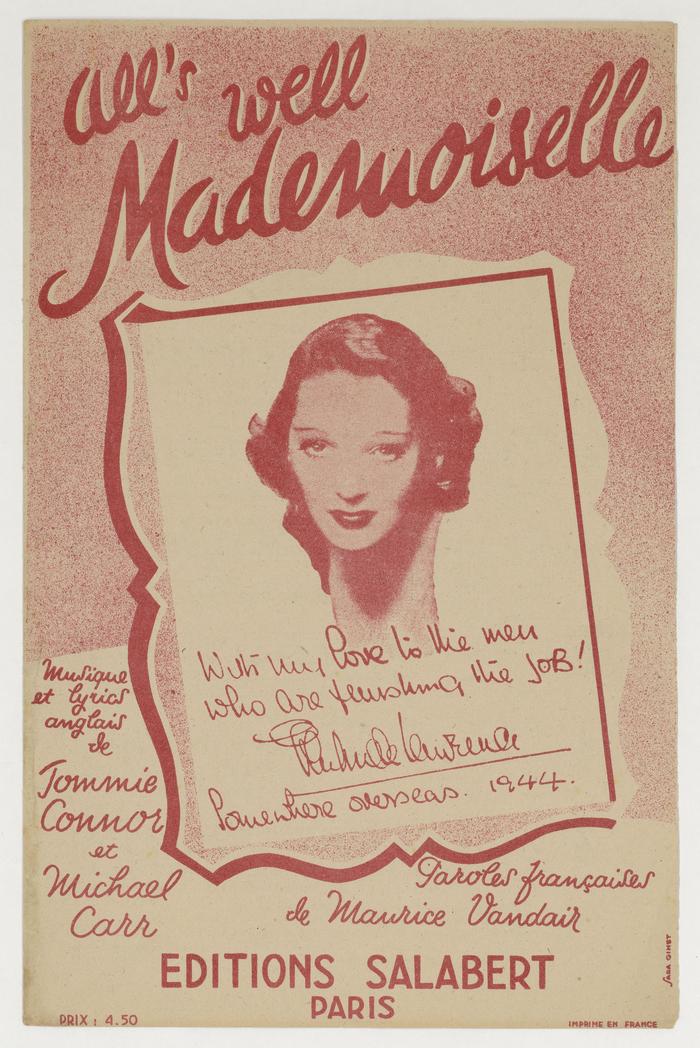 All's well
Mademoiselle
With my love to the men
who are finishing the JoB!
Gertrude Lawrence
Somewhere overseas. 1944.
Musique
et lyrics
anglais
de
Tommie
Connor
et
Michael
Carr
Paroles françaises
de Maurice Vandair
EDITIONS SALABERT
PARIS
PRIX : 4.50
IMPRIMÉ EN FRANCE
SARA GINET